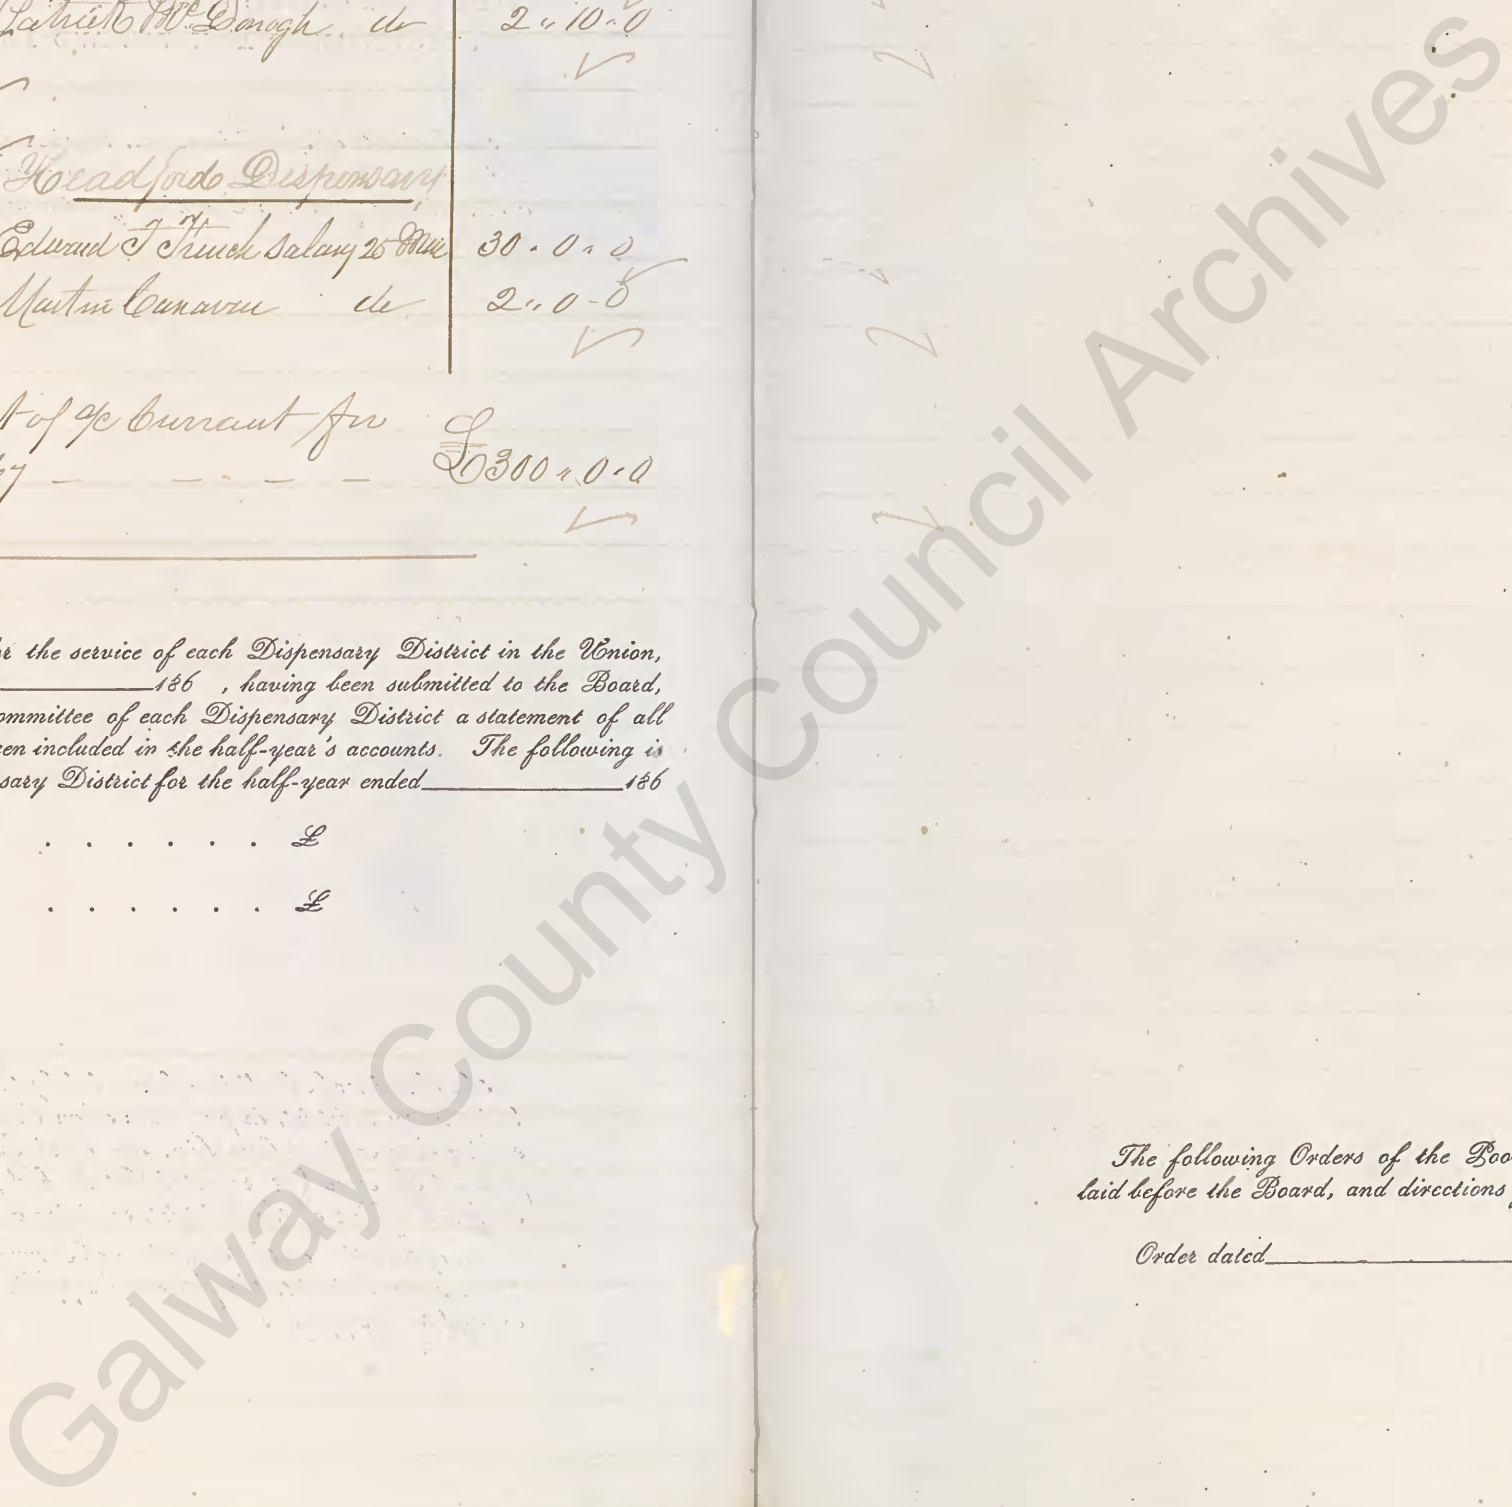 Patrick McDonogh do 2 " 10 " 0
Headford Dispensary
Edward T French Salary 25 30 " 0 " 0
Martin Canavan do 2 " 0 " 0
t of a/c Currant for
£300 " 0 " 0
the service of each Dispensary District in the Union,
186 , having been submitted to the Board,
ommittee of each Dispensary District a statement of all
een included in the half-year's accounts. The following is
sary District for the half-year ended 186
. . . . . . £
. . . . . . £
The following Orders of the Poo
laid before the Board, and directions
Order dated
Galway County Council Archives